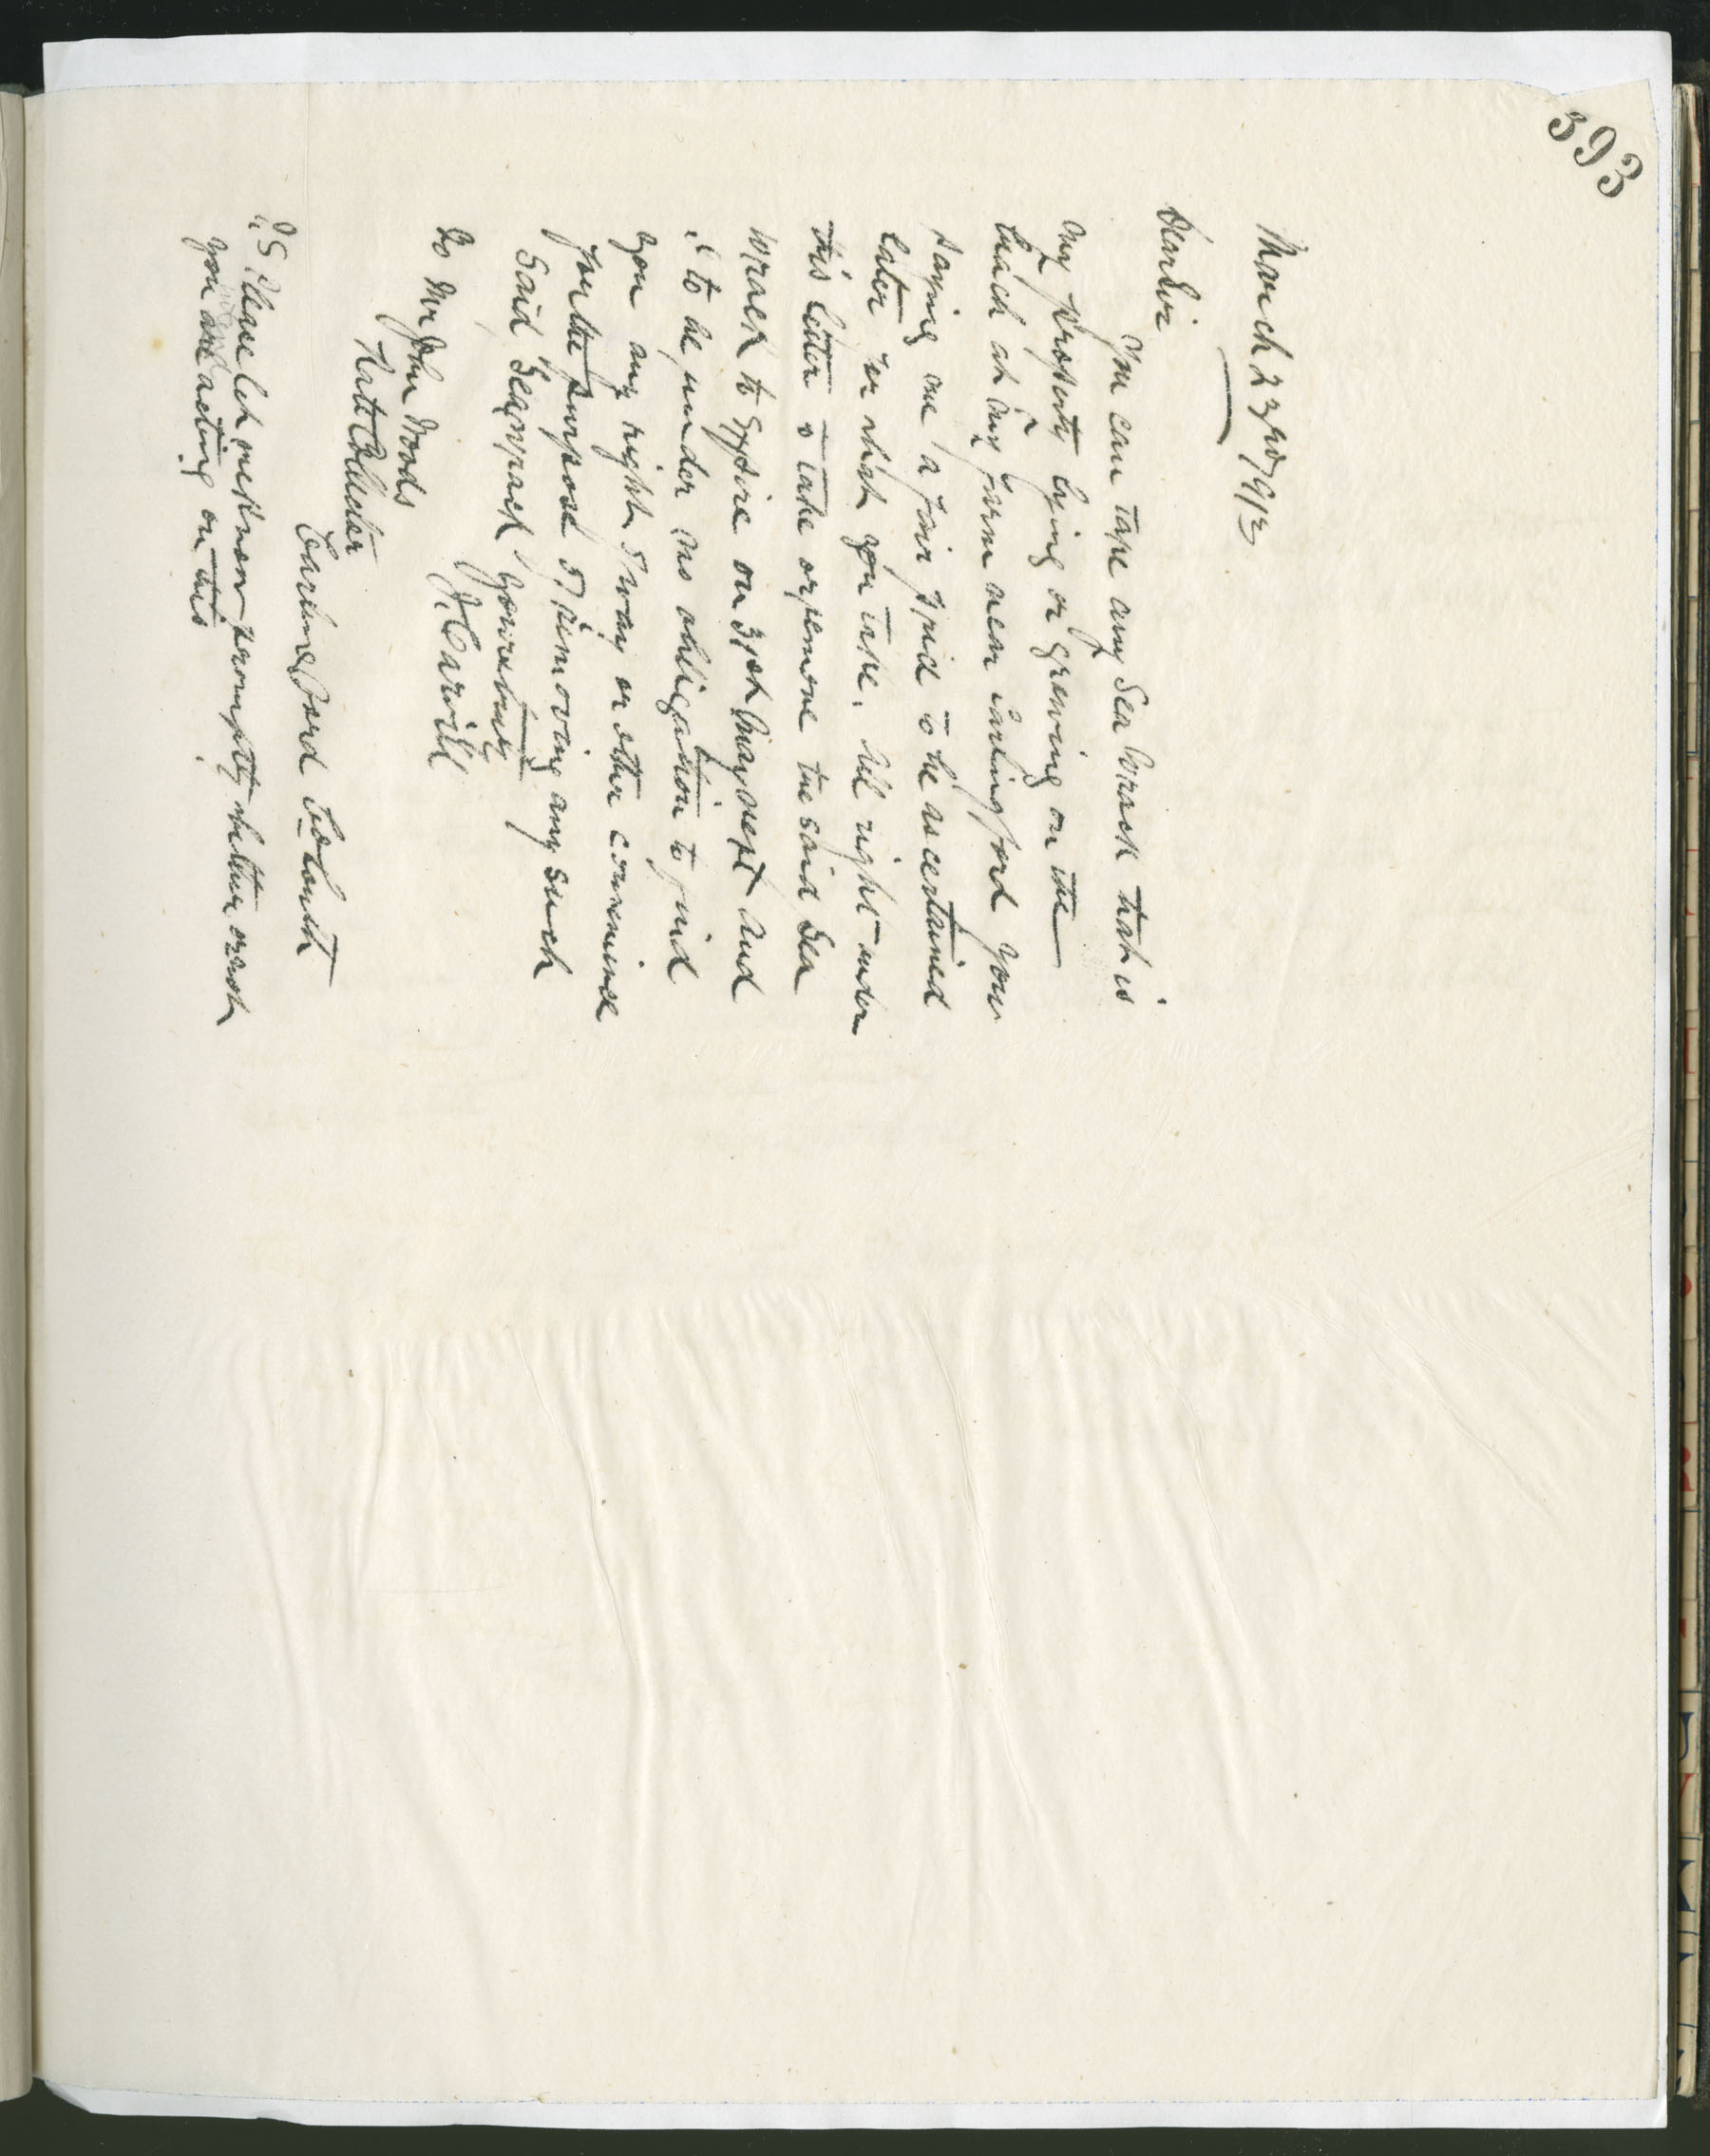 393
March 23rd 1912
Dear Sir
You can take any Sea Wrack that is
my property lying or growing on the
beach at my farm near Carlingford you
paying me a fair price to be ascertained
later for what you take. All right under
this letter to take or remove the said Sea
Wrack to expire on 31st May next and
I to be under no obligation to find
you any right of way or other convenience
for the purpose of removing any such
said Seawrack yours truly
J. Carvill
To Mr John Woods
Carlingford Co Louth
P.S. Please let me know promptly whether or not
you are acting on this